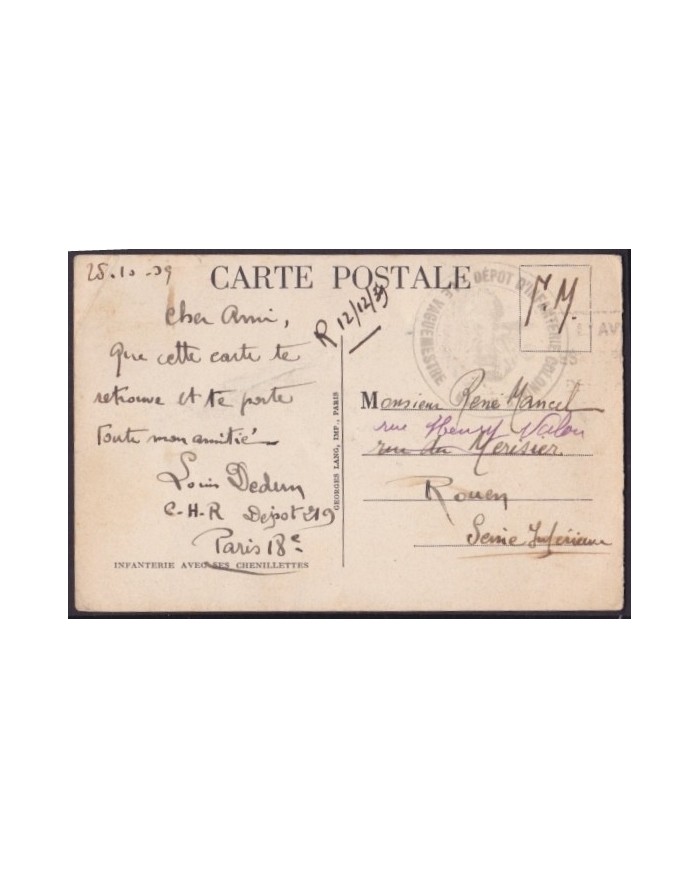 25.10-39
CARTE POSTALE
F.M.
R 12/12/39
Cher Ami,
que cette carte te
retrouve et te porte
toute mon amitié
Louis
C-H-R Depot 219
Paris 18e
INFANTERIE AVEC SES CHENILLETTES
GEORGES LANG, IMP., PARIS
VAGUEMESTRE DÉPOT D'INFANTERIE
AV
Monsieur René Mancel
rue Henry
rue du Merisier
Rouen
Seine Inférieure